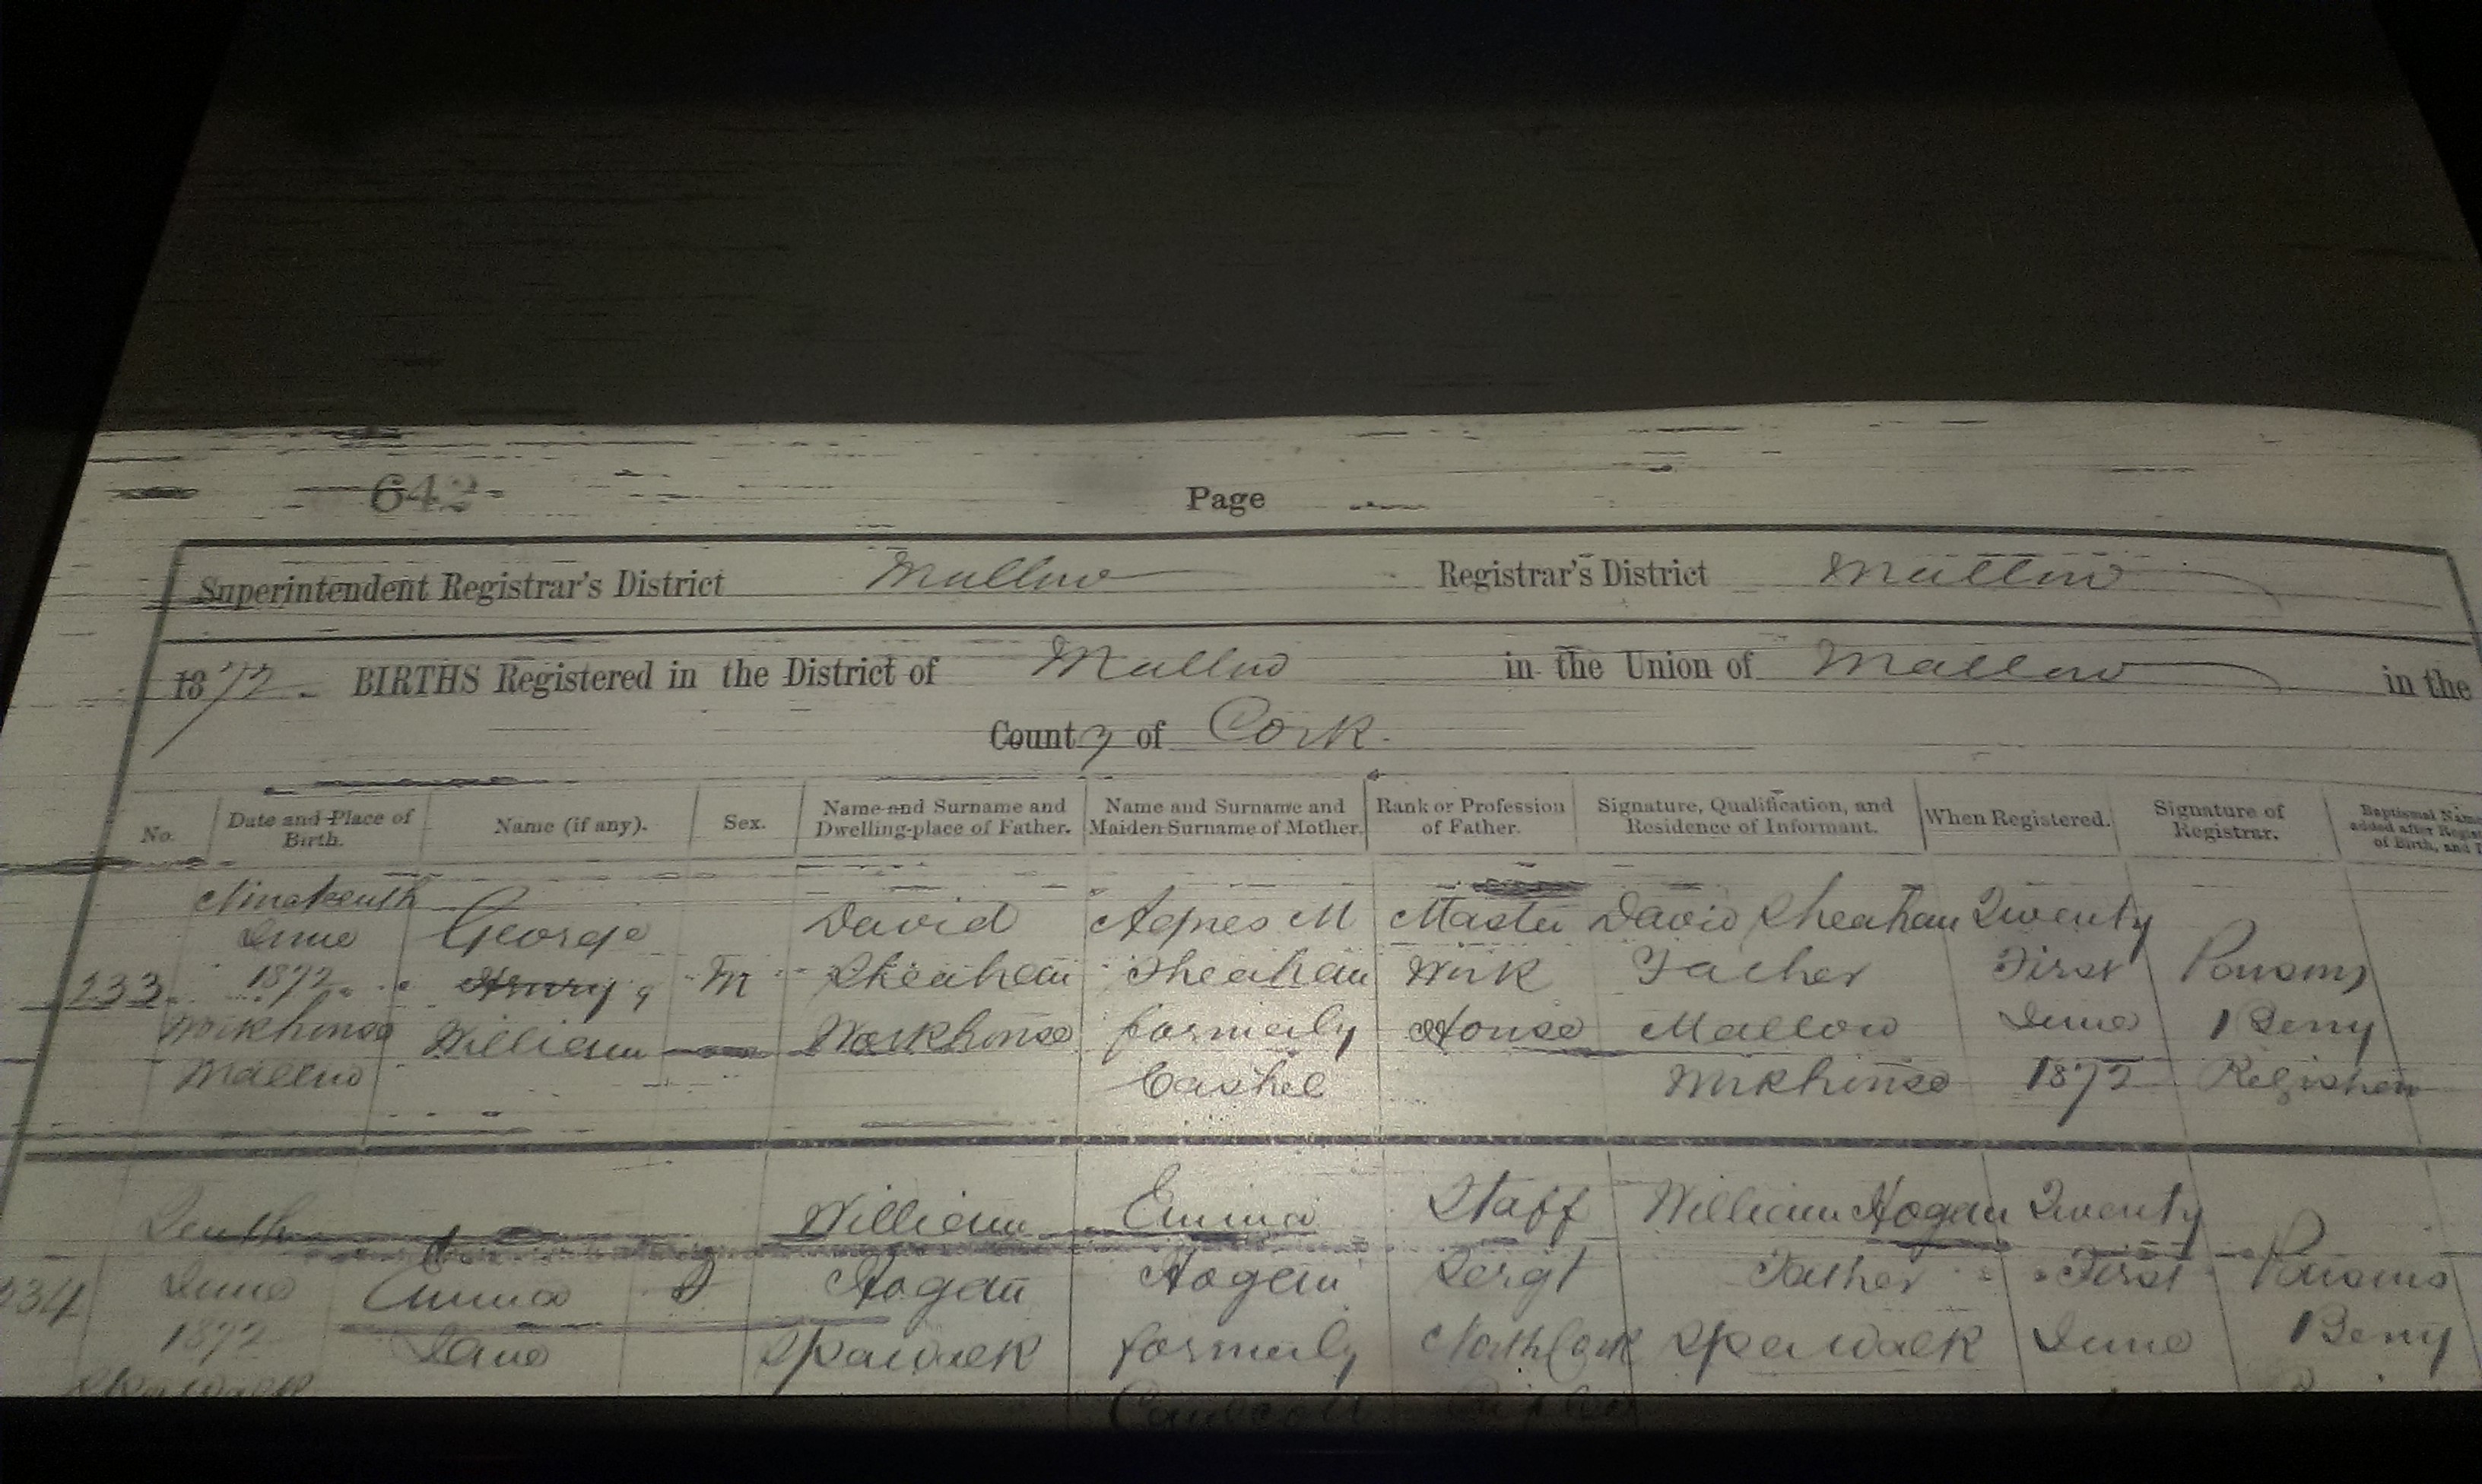 642
Page
Superintendent Registrar's District Mallow Registrar's District Mallow
1872. BIRTHS Registered in the District of Mallow in the Union of Mallow in the
County of Cork.
No. Date and Place of Birth. Name (if any). Sex. Name and Surname and Dwelling-place of Father. Name and Surname and Maiden Surname of Mother. Rank or Profession of Father. Signature, Qualification, and Residence of Informant. When Registered. Signature of Registrar. Baptismal Name added after Regis of Birth, and
Nineteenth George David Agnes M Master David Sheahan Twenty
June Sheahan Sheahan Work Father First Parsons
233 1872 Henry M Workhouse formerly House Mallow June Berry
Workhouse William Cashel Workhouse 1872 Registrar
Mallow
Tenth William Emma Staff William Hogan Twenty
234 June Emma F Hogan Hogan Sergt Father First Parsons
1872 Jane Spawalk formerly North Cork Spawalk June Berry
Spawalk